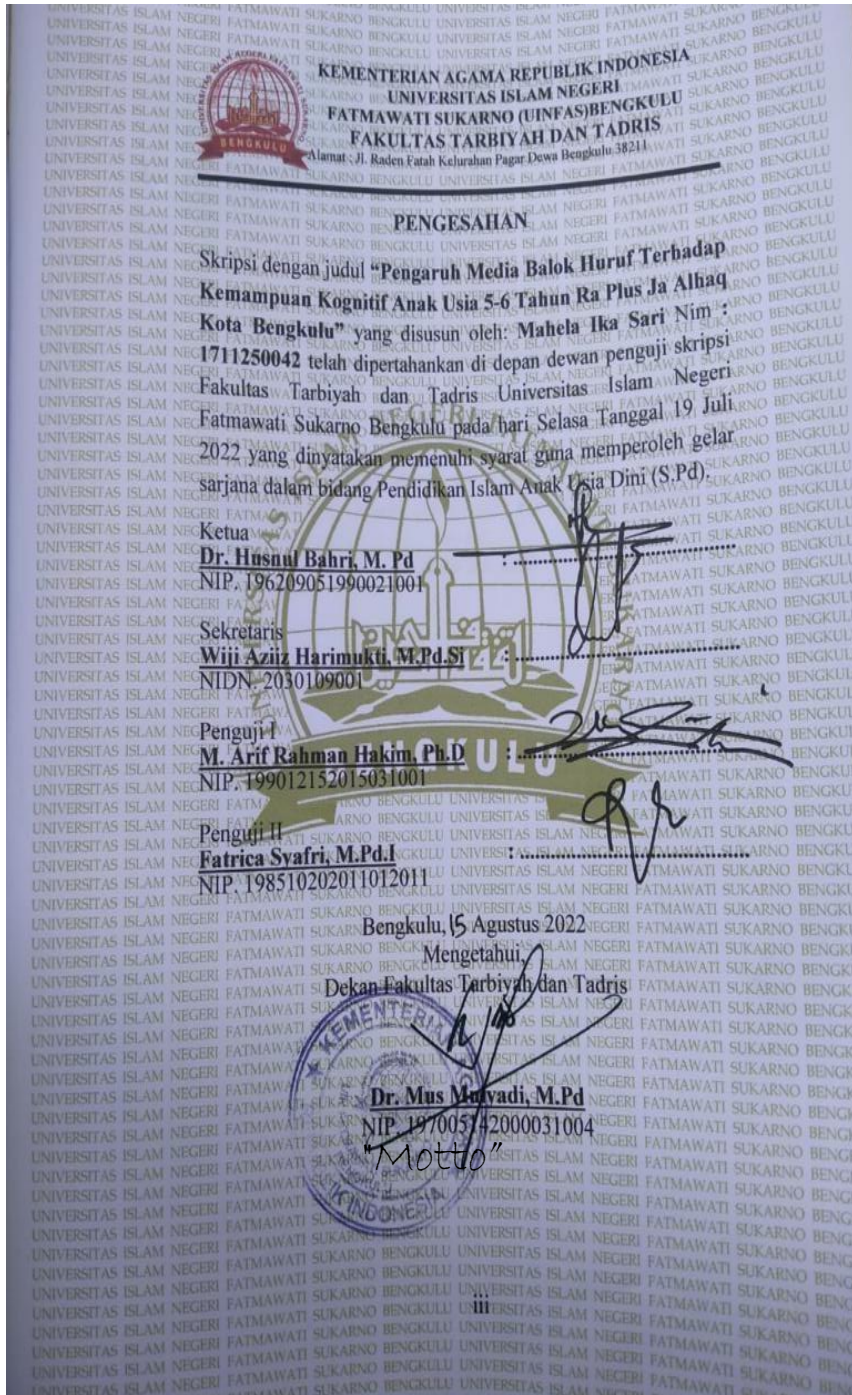 KEMENTERIAN AGAMA REPUBLIK INDONESIA
UNIVERSITAS ISLAM NEGERI
FATMAWATI SUKARNO (UINFAS)BENGKULU
FAKULTAS TARBIYAH DAN TADRIS
Alamat : Jl. Raden Fatah Kelurahan Pagar Dewa Bengkulu 38211
BENGKULU
PENGESAHAN
Skripsi dengan judul “Pengaruh Media Balok Huruf Terhadap
Kemampuan Kognitif Anak Usia 5-6 Tahun Ra Plus Ja Alhaq
Kota Bengkulu” yang disusun oleh: Mahela Ika Sari Nim :
1711250042 telah dipertahankan di depan dewan penguji skripsi
Fakultas Tarbiyah dan Tadris Universitas Islam Negeri
Fatmawati Sukarno Bengkulu pada hari Selasa Tanggal 19 Juli
2022 yang dinyatakan memenuhi syarat guna memperoleh gelar
sarjana dalam bidang Pendidikan Islam Anak Usia Dini (S.Pd).
Ketua
Dr. Husnul Bahri, M. Pd :
NIP. 196209051990021001
Sekretaris
Wiji Aziiz Harimukti, M.Pd.Si :
NIDN. 2030109001
Penguji I
M. Arif Rahman Hakim, Ph.D :
NIP. 199012152015031001
Penguji II
Fatrica Syafri, M.Pd.I :
NIP. 198510202011012011
Bengkulu, 15 Agustus 2022
Mengetahui,
Dekan Fakultas Tarbiyah dan Tadris
Dr. Mus Mulyadi, M.Pd
NIP. 197005142000031004
"Motto"
iii